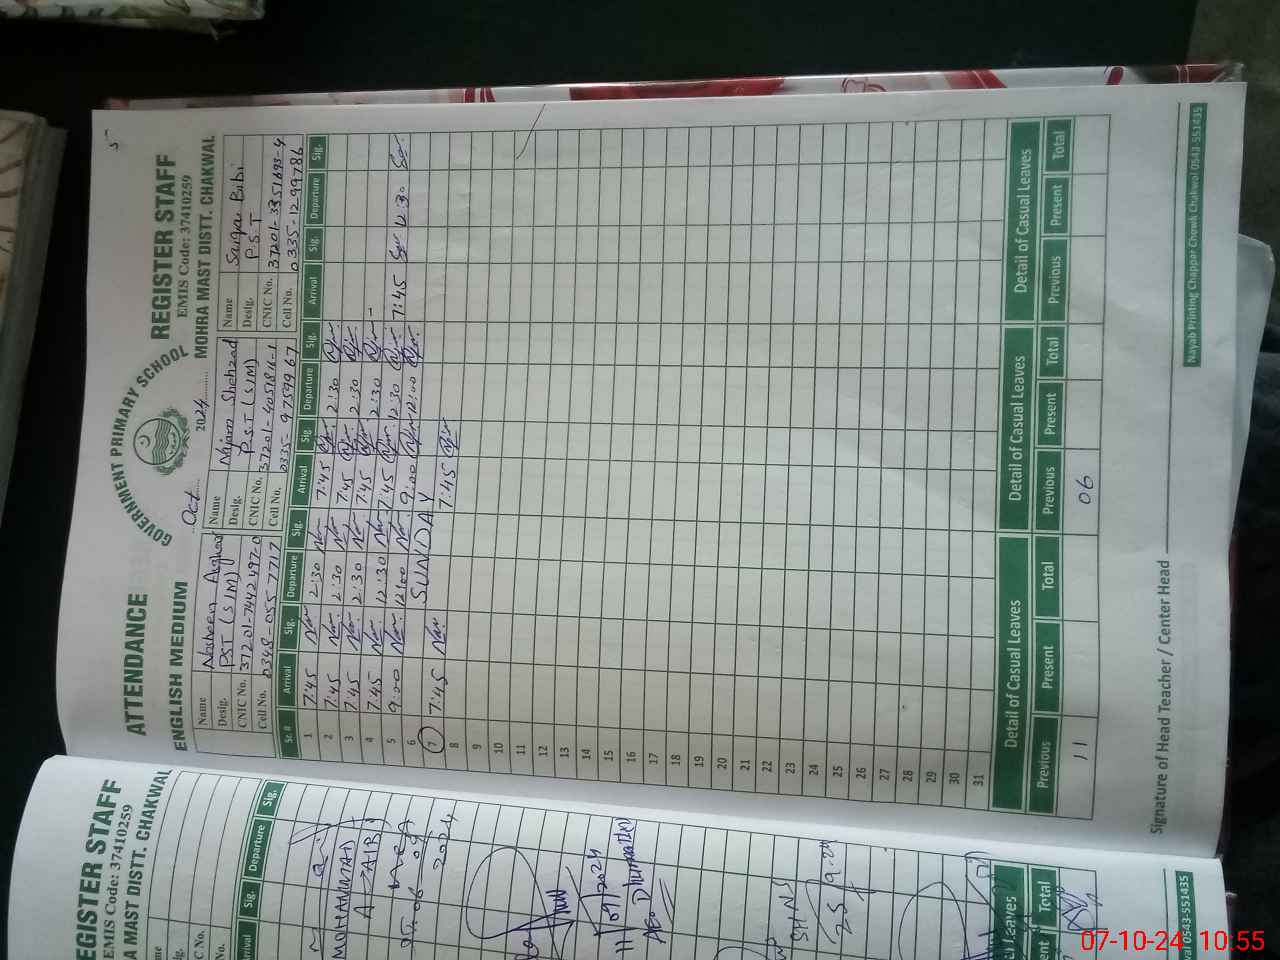 ATTENDANCE REGISTER STAFF
GOVERNMENT PRIMARY SCHOOL
EMIS Code: 37410259
ENGLISH MEDIUM Oct 2024 MOHRA MAST DISTT. CHAKWAL
5
Name Nosheen Asghar Name Nijam Shehzad Name Saiqa Bibi
Desig. PST (SIM) Desig. P.S.T (SIM) Desig. P.S.T
CNIC No. 37201-7442497-0 CNIC No. CNIC No.
Cell No. 0348-0557717 Cell No. 0335-9759967 Cell No. 0335-1299786
Sr. # Arrival Sig. Departure Sig. Arrival Sig. Departure Sig. Arrival Sig. Departure Sig.
1 7:45 2:30 7:45 2:30
2 7:45 2:30 7:45 2:30
3 7:45 2:30 7:45 2:30
4 7:45 12:30 7:45 12:30 7:45 12:30
5 9:00 12:00 9:00 12:00
6 SUNDAY
7 7:45 7:45
8
9
10
11
12
13
14
15
16
17
18
19
20
21
22
23
24
25
26
27
28
29
30
31
Detail of Casual Leaves Detail of Casual Leaves Detail of Casual Leaves
Previous Present Total Previous Present Total Previous Present Total
11 06
Signature of Head Teacher / Center Head
Nayab Printing Chappar Chowk Chakwal 0543-551435
EGISTER STAFF
EMIS Code: 37410259
A MAST DISTT. CHAKWAL
Departure Sig.
MOHAMMAD
2024
11/09/2024
AEO Dhumman
Total
0543-551435
07-10-24 10:55